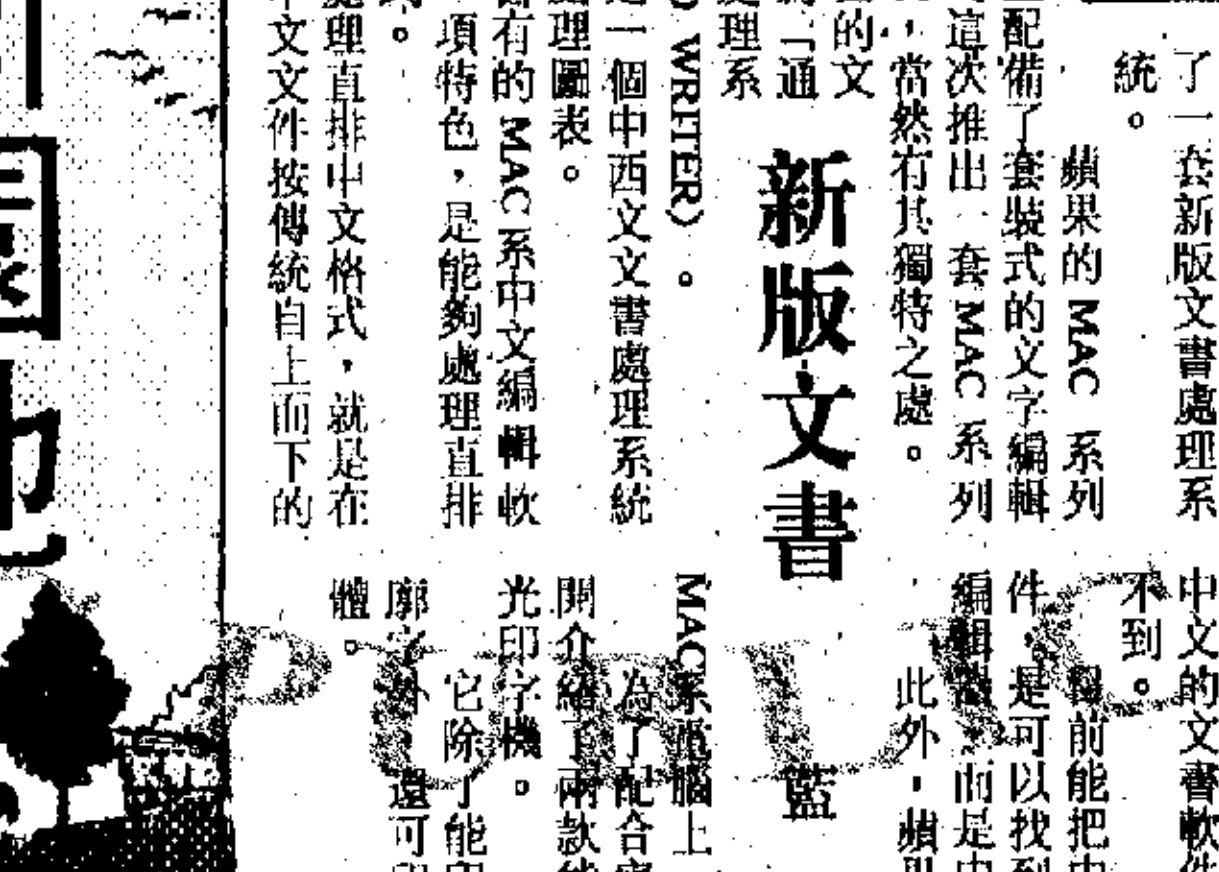 了一套新版文書處理系
統。
蘋果的 MAC 系列
配備了套裝式的文字編輯
這次推出一套 MAC 系列
,當然有其獨特之處。
的文
「通
處理系
WRITER)。
一個中西文文書處理系統
理圖表。
有的 MAC 系中文編輯軟
項特色,是能夠處理直排
。
處理直排中文格式,就是在
文文件按傳統自上而下的
新版文書
藍
中文的文書軟
不到。
前能把
件,是可以找到
編輯 而是
此外,蘋
MAC系電腦上
為了配合
開介紹了兩款
光印字機。
它除了能
廓字外,還可
體。
園地
PUBLIC